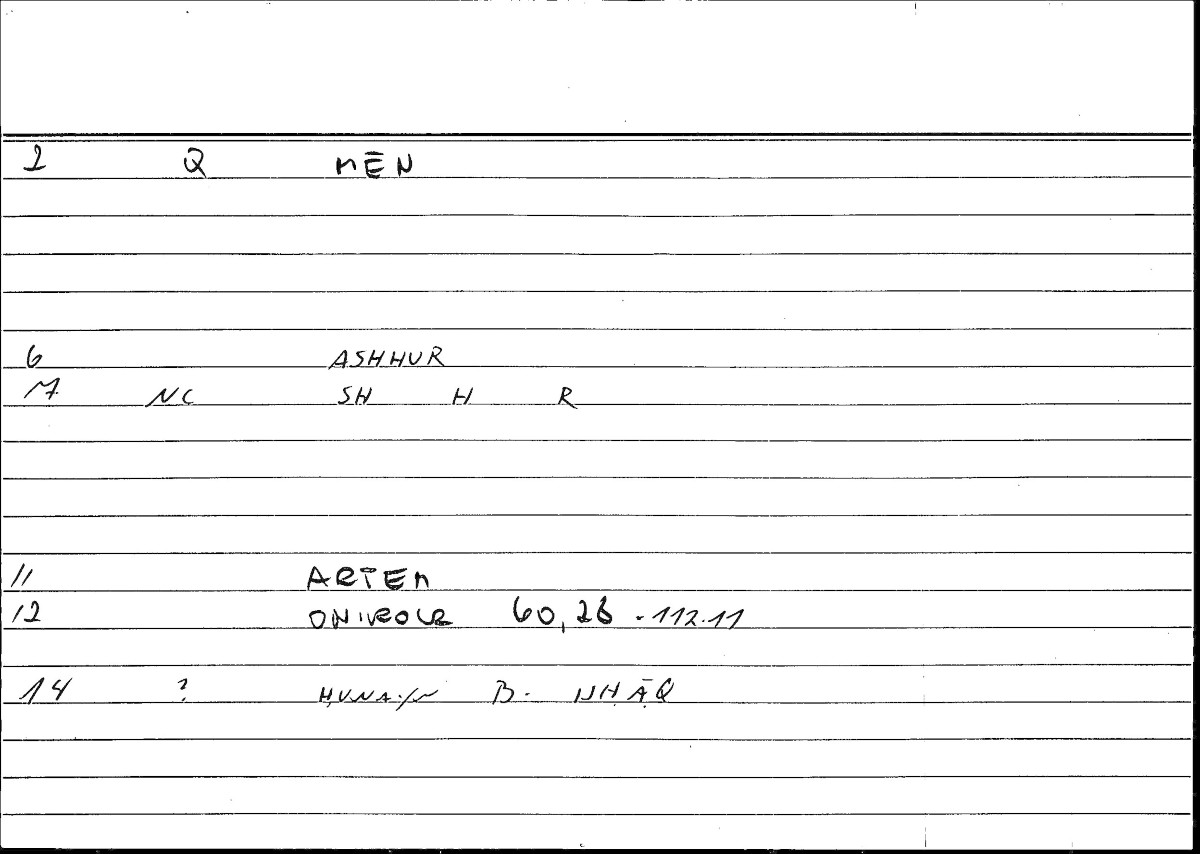 2 Q MĒN
6 ASHHUR
7 NC SH H R
11 ARTEM
12 ONIROCR 60,28 - 112.11
14 ? ḤUNAYN B. ISḤĀQ